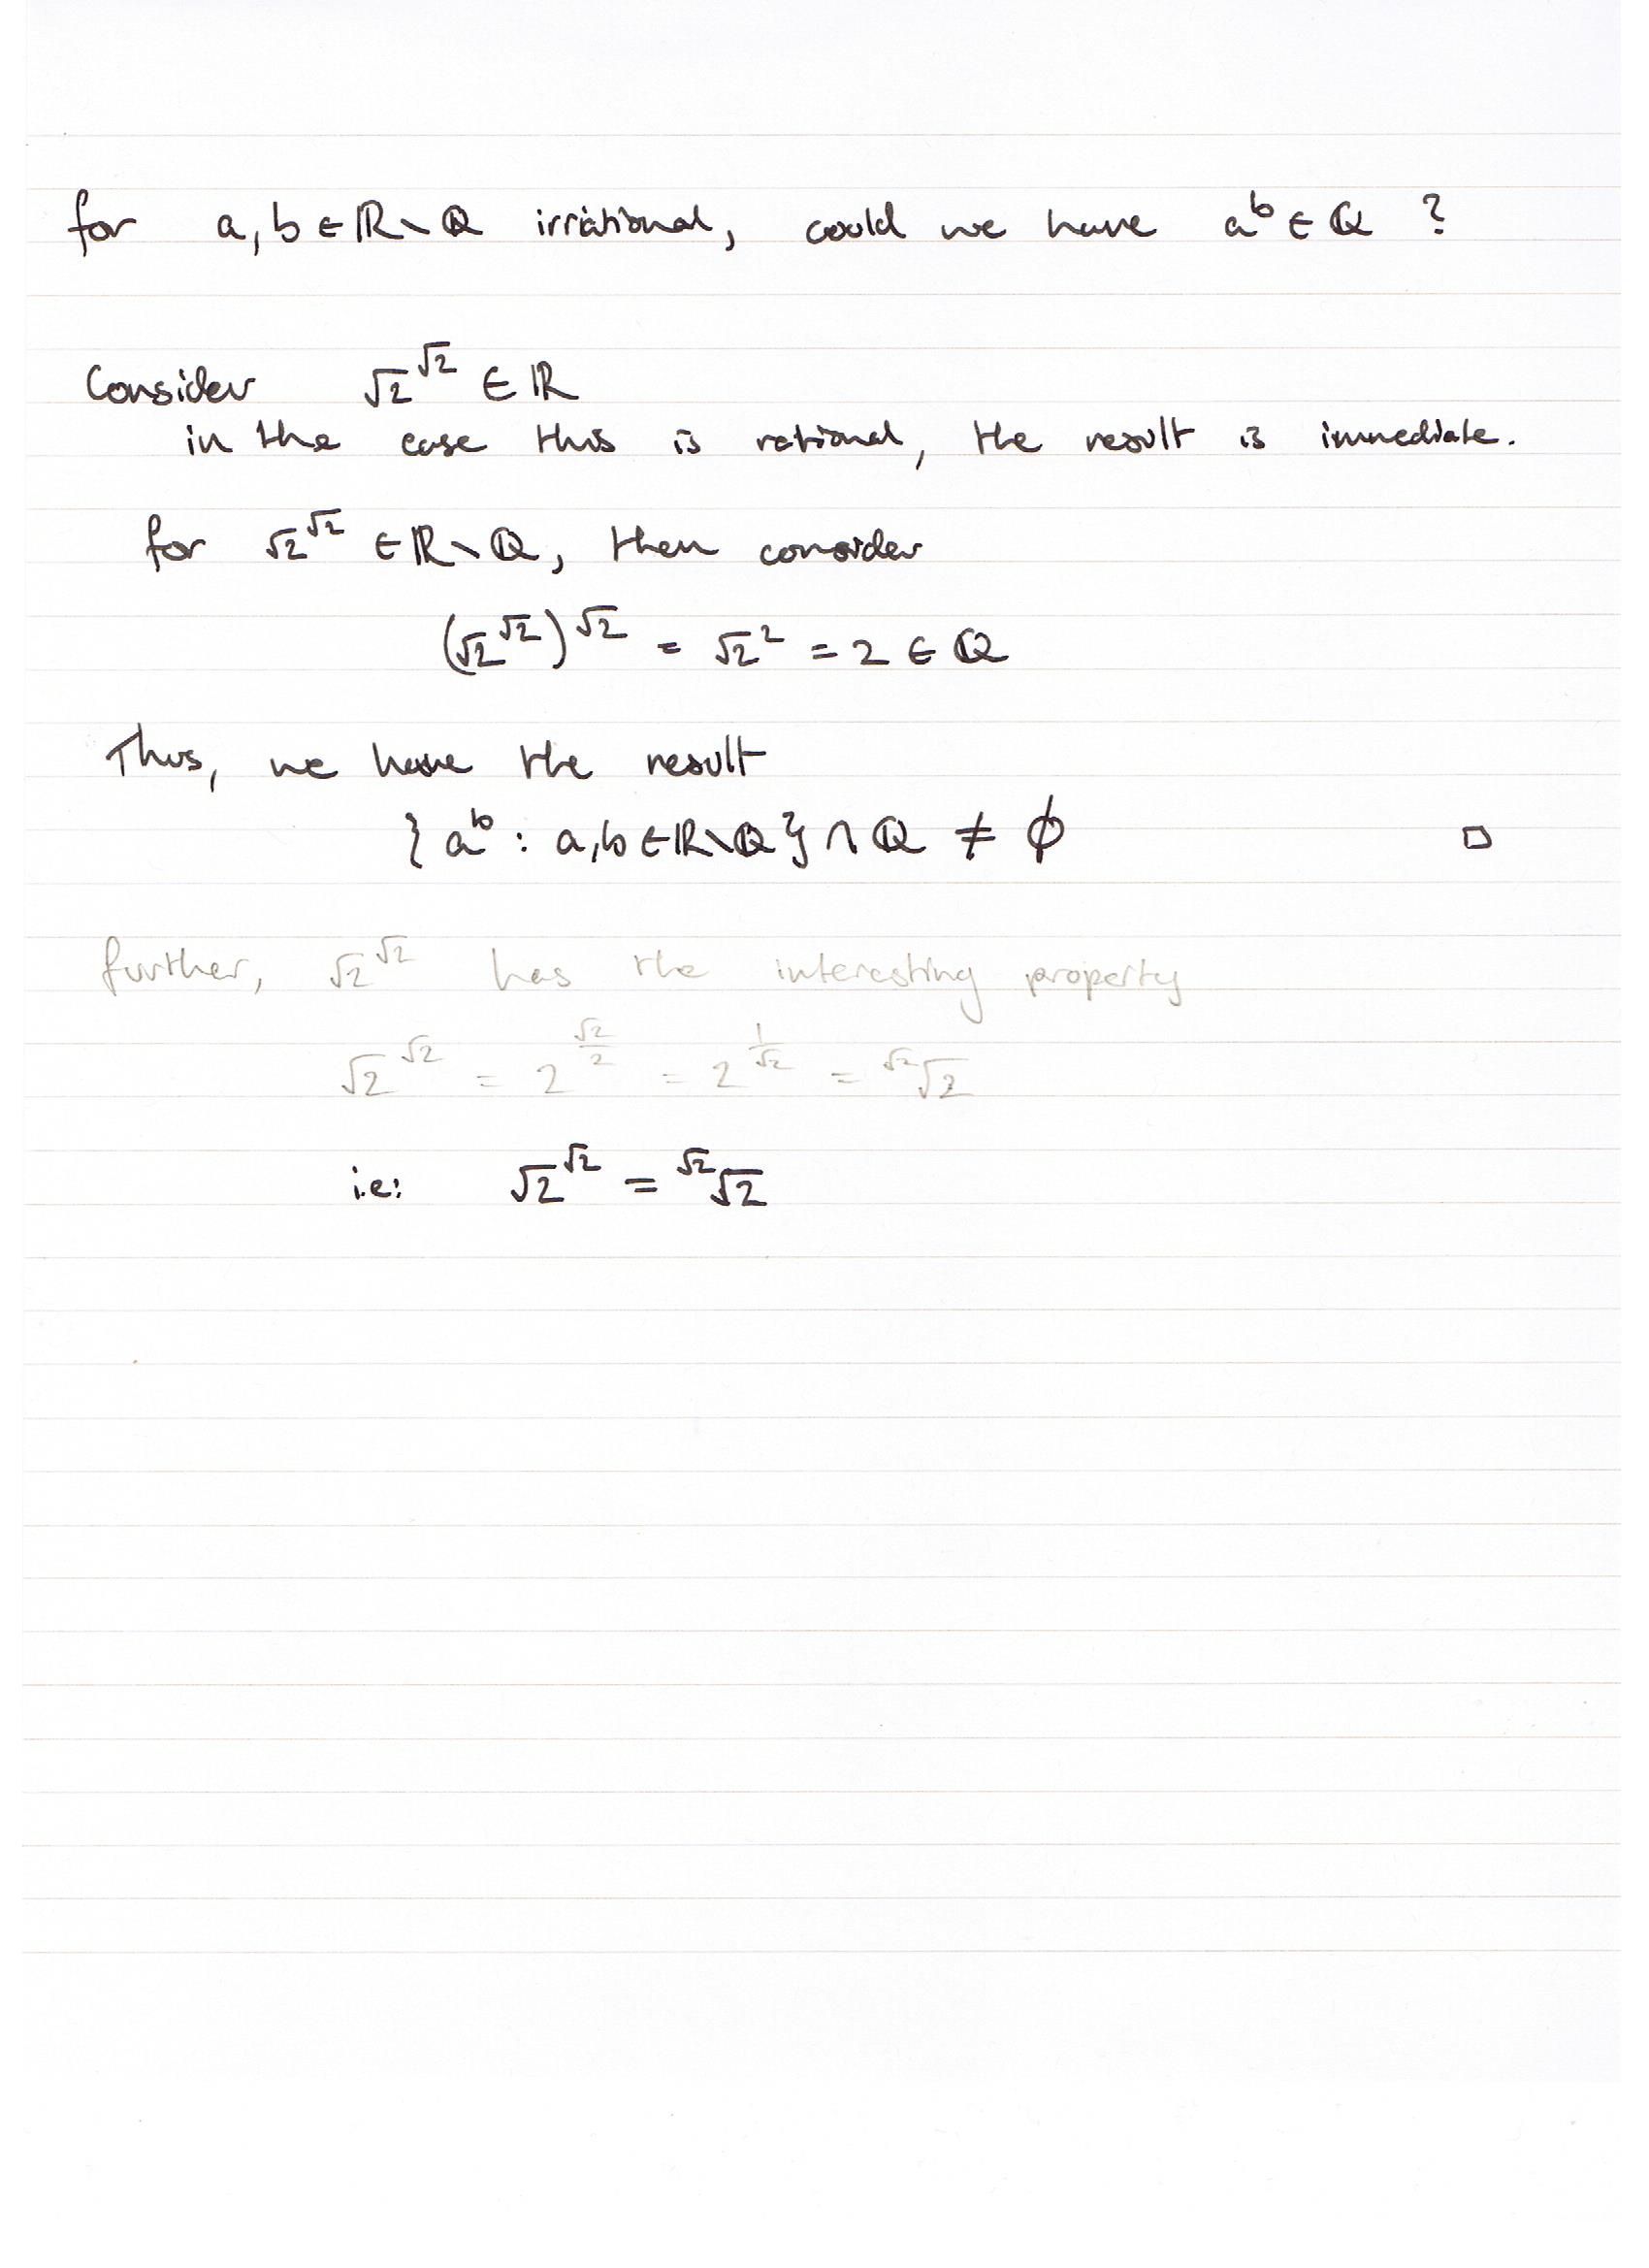 for a, b ∈ ℝ∖ℚ irrational, could we have a^b ∈ ℚ ?
Consider √2^√2 ∈ ℝ
in the case this is rational, the result is immediate.
for √2^√2 ∈ ℝ∖ℚ, then consider
(√2^√2)^√2 = √2^2 = 2 ∈ ℚ
Thus, we have the result
{ a^b : a, b ∈ ℝ∖ℚ } ∩ ℚ ≠ ∅ □
further, √2^√2 has the interesting property
√2^√2 = 2^(√2/2) = 2^(1/√2) = ^√2√2
i.e: √2^√2 = ^√2√2